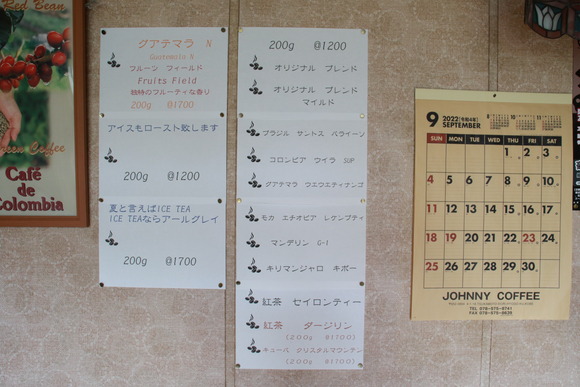 Red Bean
Green Coffee
Café
de
Colombia
グアテマラ N
Guatemala N
フルーン フィールド
Fruits Field
独特のフルーティな香り
200g @1700
アイスもロースト致します
200g @1200
夏と言えばICE TEA
ICE TEAならアールグレイ
200g @1700
200g @1200
オリジナル ブレンド
オリジナル ブレンド
マイルド
ブラジル サントス パライーソ
コロンビア ウイラ SUP
グアテマラ ウエウエティナンゴ
モカ エチオピア レケンプティ
マンデリン G-1
キリマンジャロ キボー
紅茶 セイロンティー
紅茶 ダージリン
(200g @1700)
キューバ クリスタルマウンテン
(200g @1700)
9 2022(令和4年)
SEPTEMBER
SUN MON TUE WED THU FRI SAT
1 2 3
4 5 6 7 8 9 10
11 12 13 14 15 16 17
18 19 20 21 22 23 24
25 26 27 28 29 30
JOHNNY COFFEE